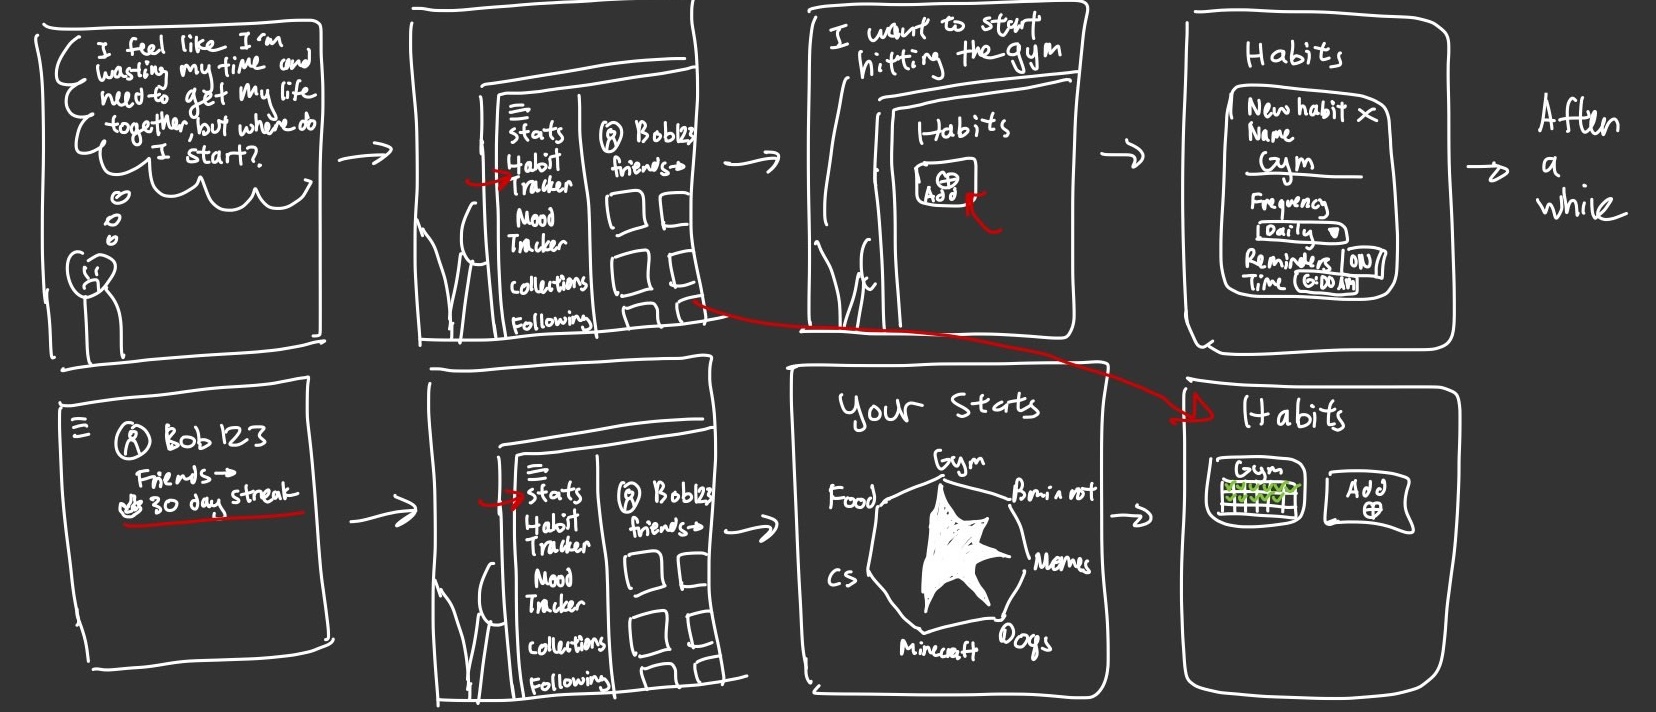 I feel like I'm
wasting my time and
need to get my life
together, but where do
I start?
Stats
Habit
Tracker
Mood
Tracker
Collections
Following
Bob123
friends→
I want to start
hitting the gym
Habits
Add
Habits
New habit X
Name
Gym
Frequency
Daily ▼
Reminders ON
Time 6:00 AM
After
a
while
Bob123
Friends→
30 day streak
Stats
Habit
Tracker
Mood
Tracker
Collections
Following
Bob123
friends→
Your Stats
Gym
Food
Brainrot
CS
Memes
Minecraft
Dogs
Habits
Gym
Add